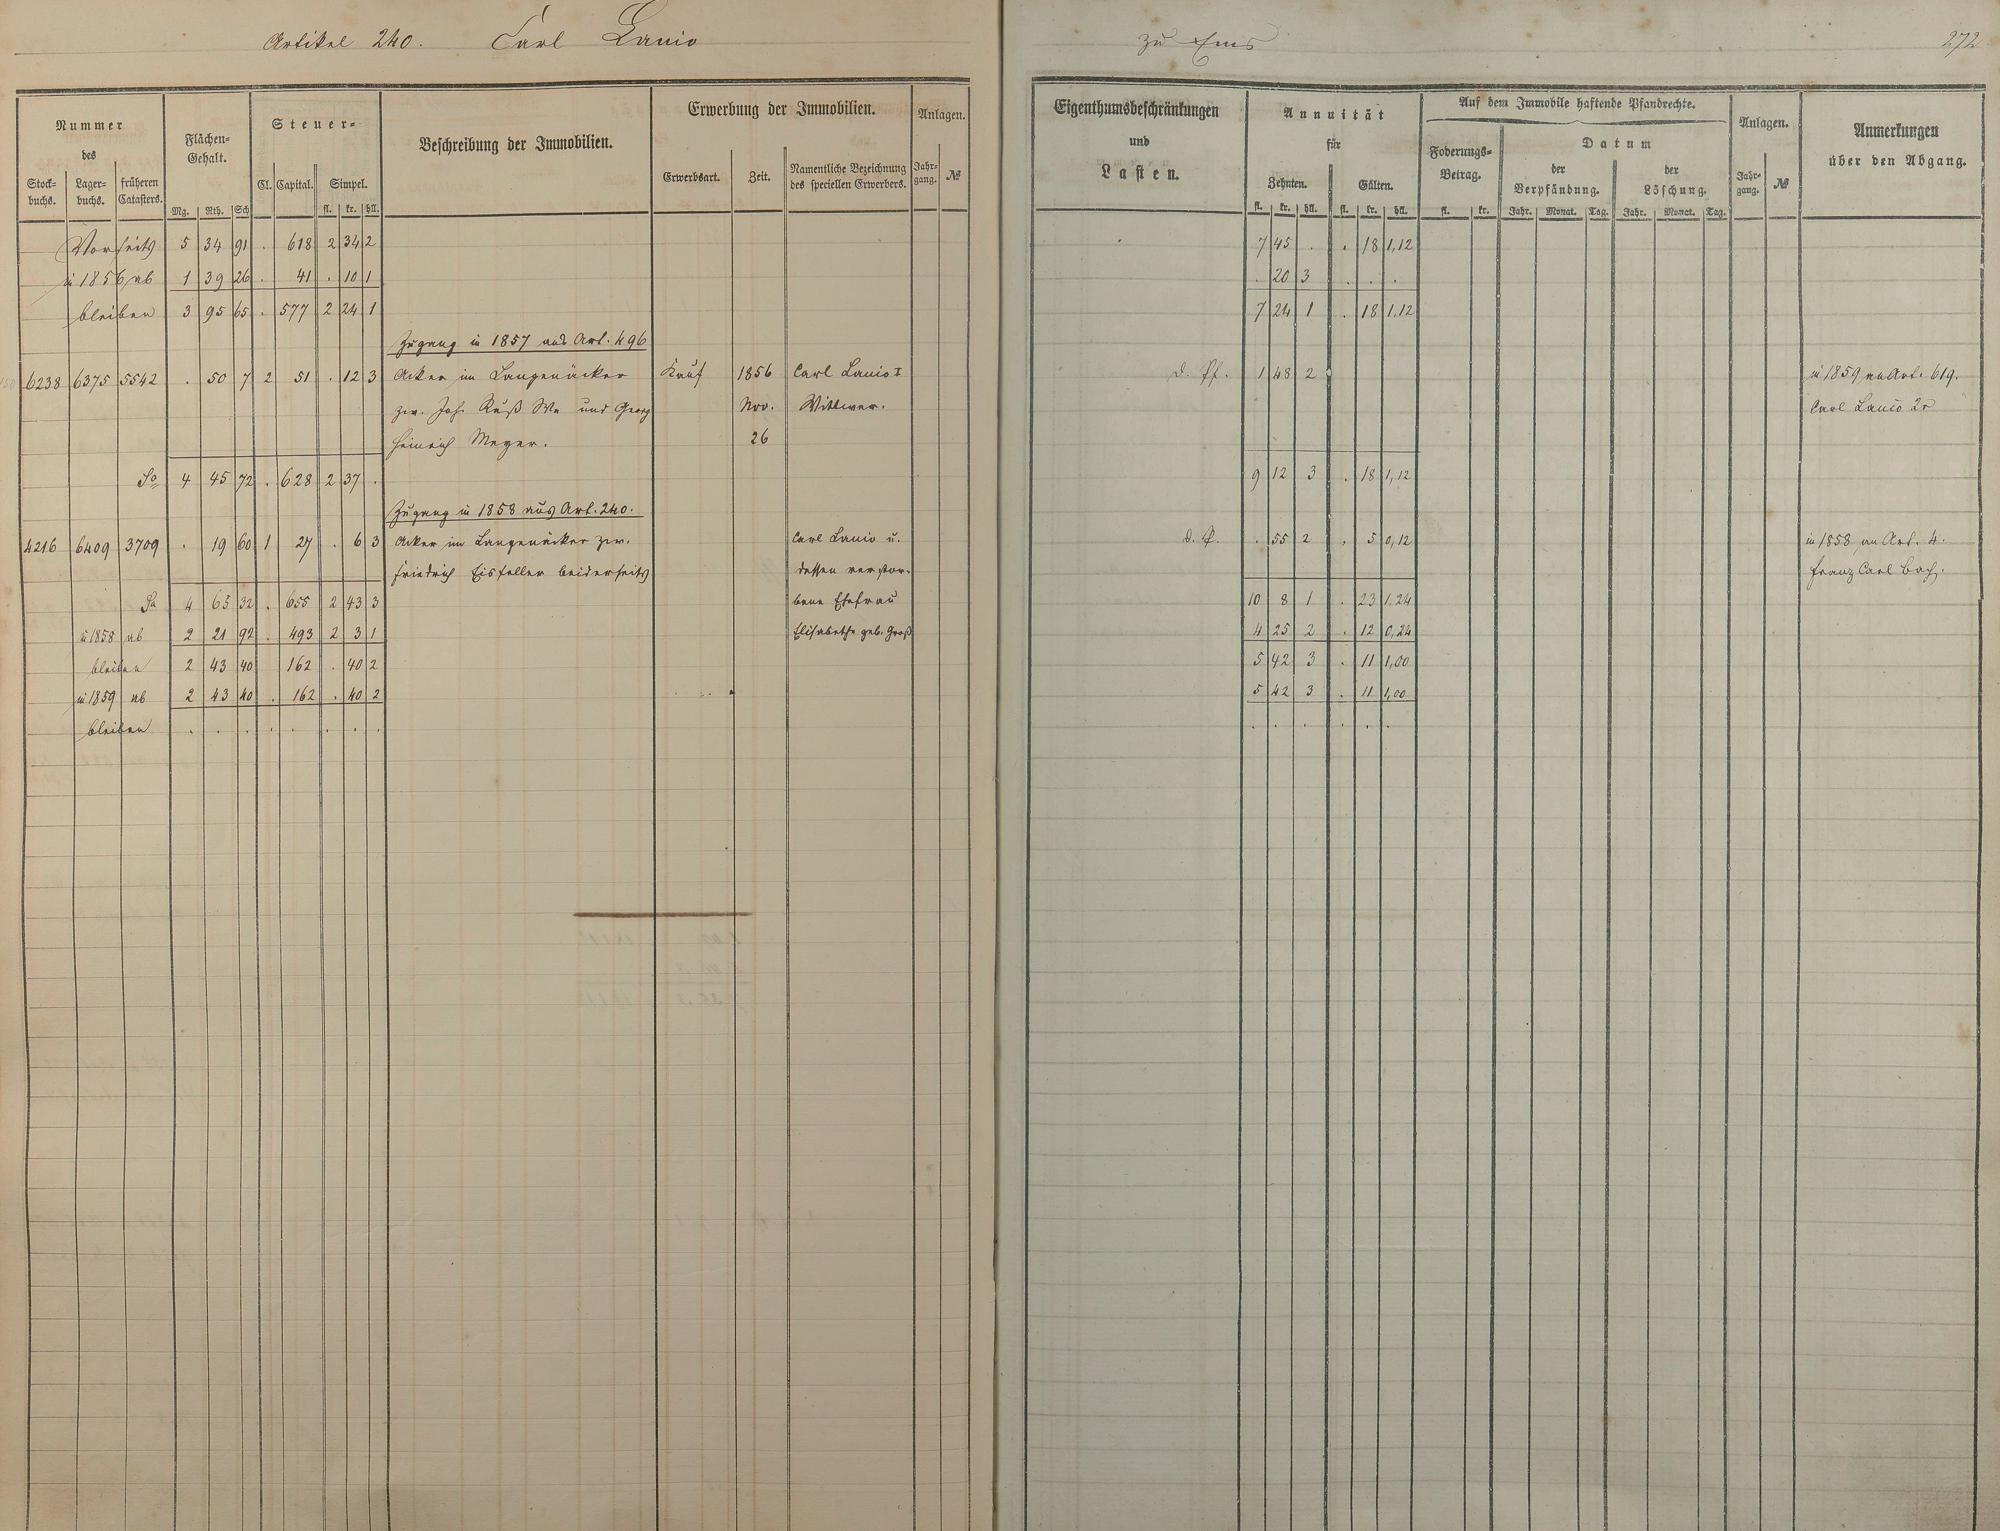 Artikel 240. Carl Lanio zu Ems 272
Nummer des
Stock-buchs. Lager-buchs. früheren Catasters.
Flächen-Gehalt.
Mg. Rth. Sch
Steuer-
Cl. Capital. Simpel.
fl. kr. hll.
Beschreibung der Immobilien.
Erwerbung der Immobilien.
Erwerbsart. Zeit. Namentliche Bezeichnung des speciellen Erwerbers.
Anlagen.
Jahr-gang. №
Eigenthumsbeschränkungen und Lasten.
Annuität für
Zehnten. Gülten.
fl. kr. hll. fl. kr. hll.
Auf dem Immobile haftende Pfandrechte.
Foderungs-Betrag.
fl. kr.
Datum
der Verpfändung. der Löschung.
Jahr. Monat. Tag. Jahr. Monat. Tag.
Anlagen.
Jahr-gang. №
Anmerkungen über den Abgang.
Vorseits 5 34 91 . 618 2 34 2 7 45 . . 18 1,12
in 1856 ab 1 39 26 . 41 . 10 1 . 20 3 . . .
bleiben 3 95 65 . 577 2 24 1 7 24 1 . 18 1,12
Zugang in 1857 aus Art. 496
6238 6375 5542 . 50 7 2 51 . 12 3 Acker im Langenäcker Kauf 1856 Carl Lanio I d. Pf. 1 48 2 in 1859 an Art. 619.
zw. Joh. Ruß We und Georg Nov. Wittwer. Carl Lanio 2r
Heinrich Meyer. 26
Sa 4 45 72 . 628 2 37 . 9 12 3 . 18 1,12
Zugang in 1858 aus Art. 240.
4216 6409 3709 . 19 60 1 27 . 6 3 Acker im Langenäcker zw. Carl Lanio u. d. Pf. . 55 2 . 5 0,12 in 1858 an Art. 4.
Friedrich Eisfeller beiderseits dessen verstor- Franz Carl Bach.
Sa 4 65 32 . 655 2 43 3 bene Ehefrau 10 8 1 . 23 1,24
in 1858 ab 2 21 92 . 493 2 3 1 Elisabethe geb. Groß 4 25 2 . 12 0,24
bleiben 2 43 40 162 . 40 2 5 42 3 . 11 1,00
in 1859 ab 2 43 40 . 162 . 40 2 5 42 3 . 11 1,00
bleiben . . . . . . . . . . . . . .